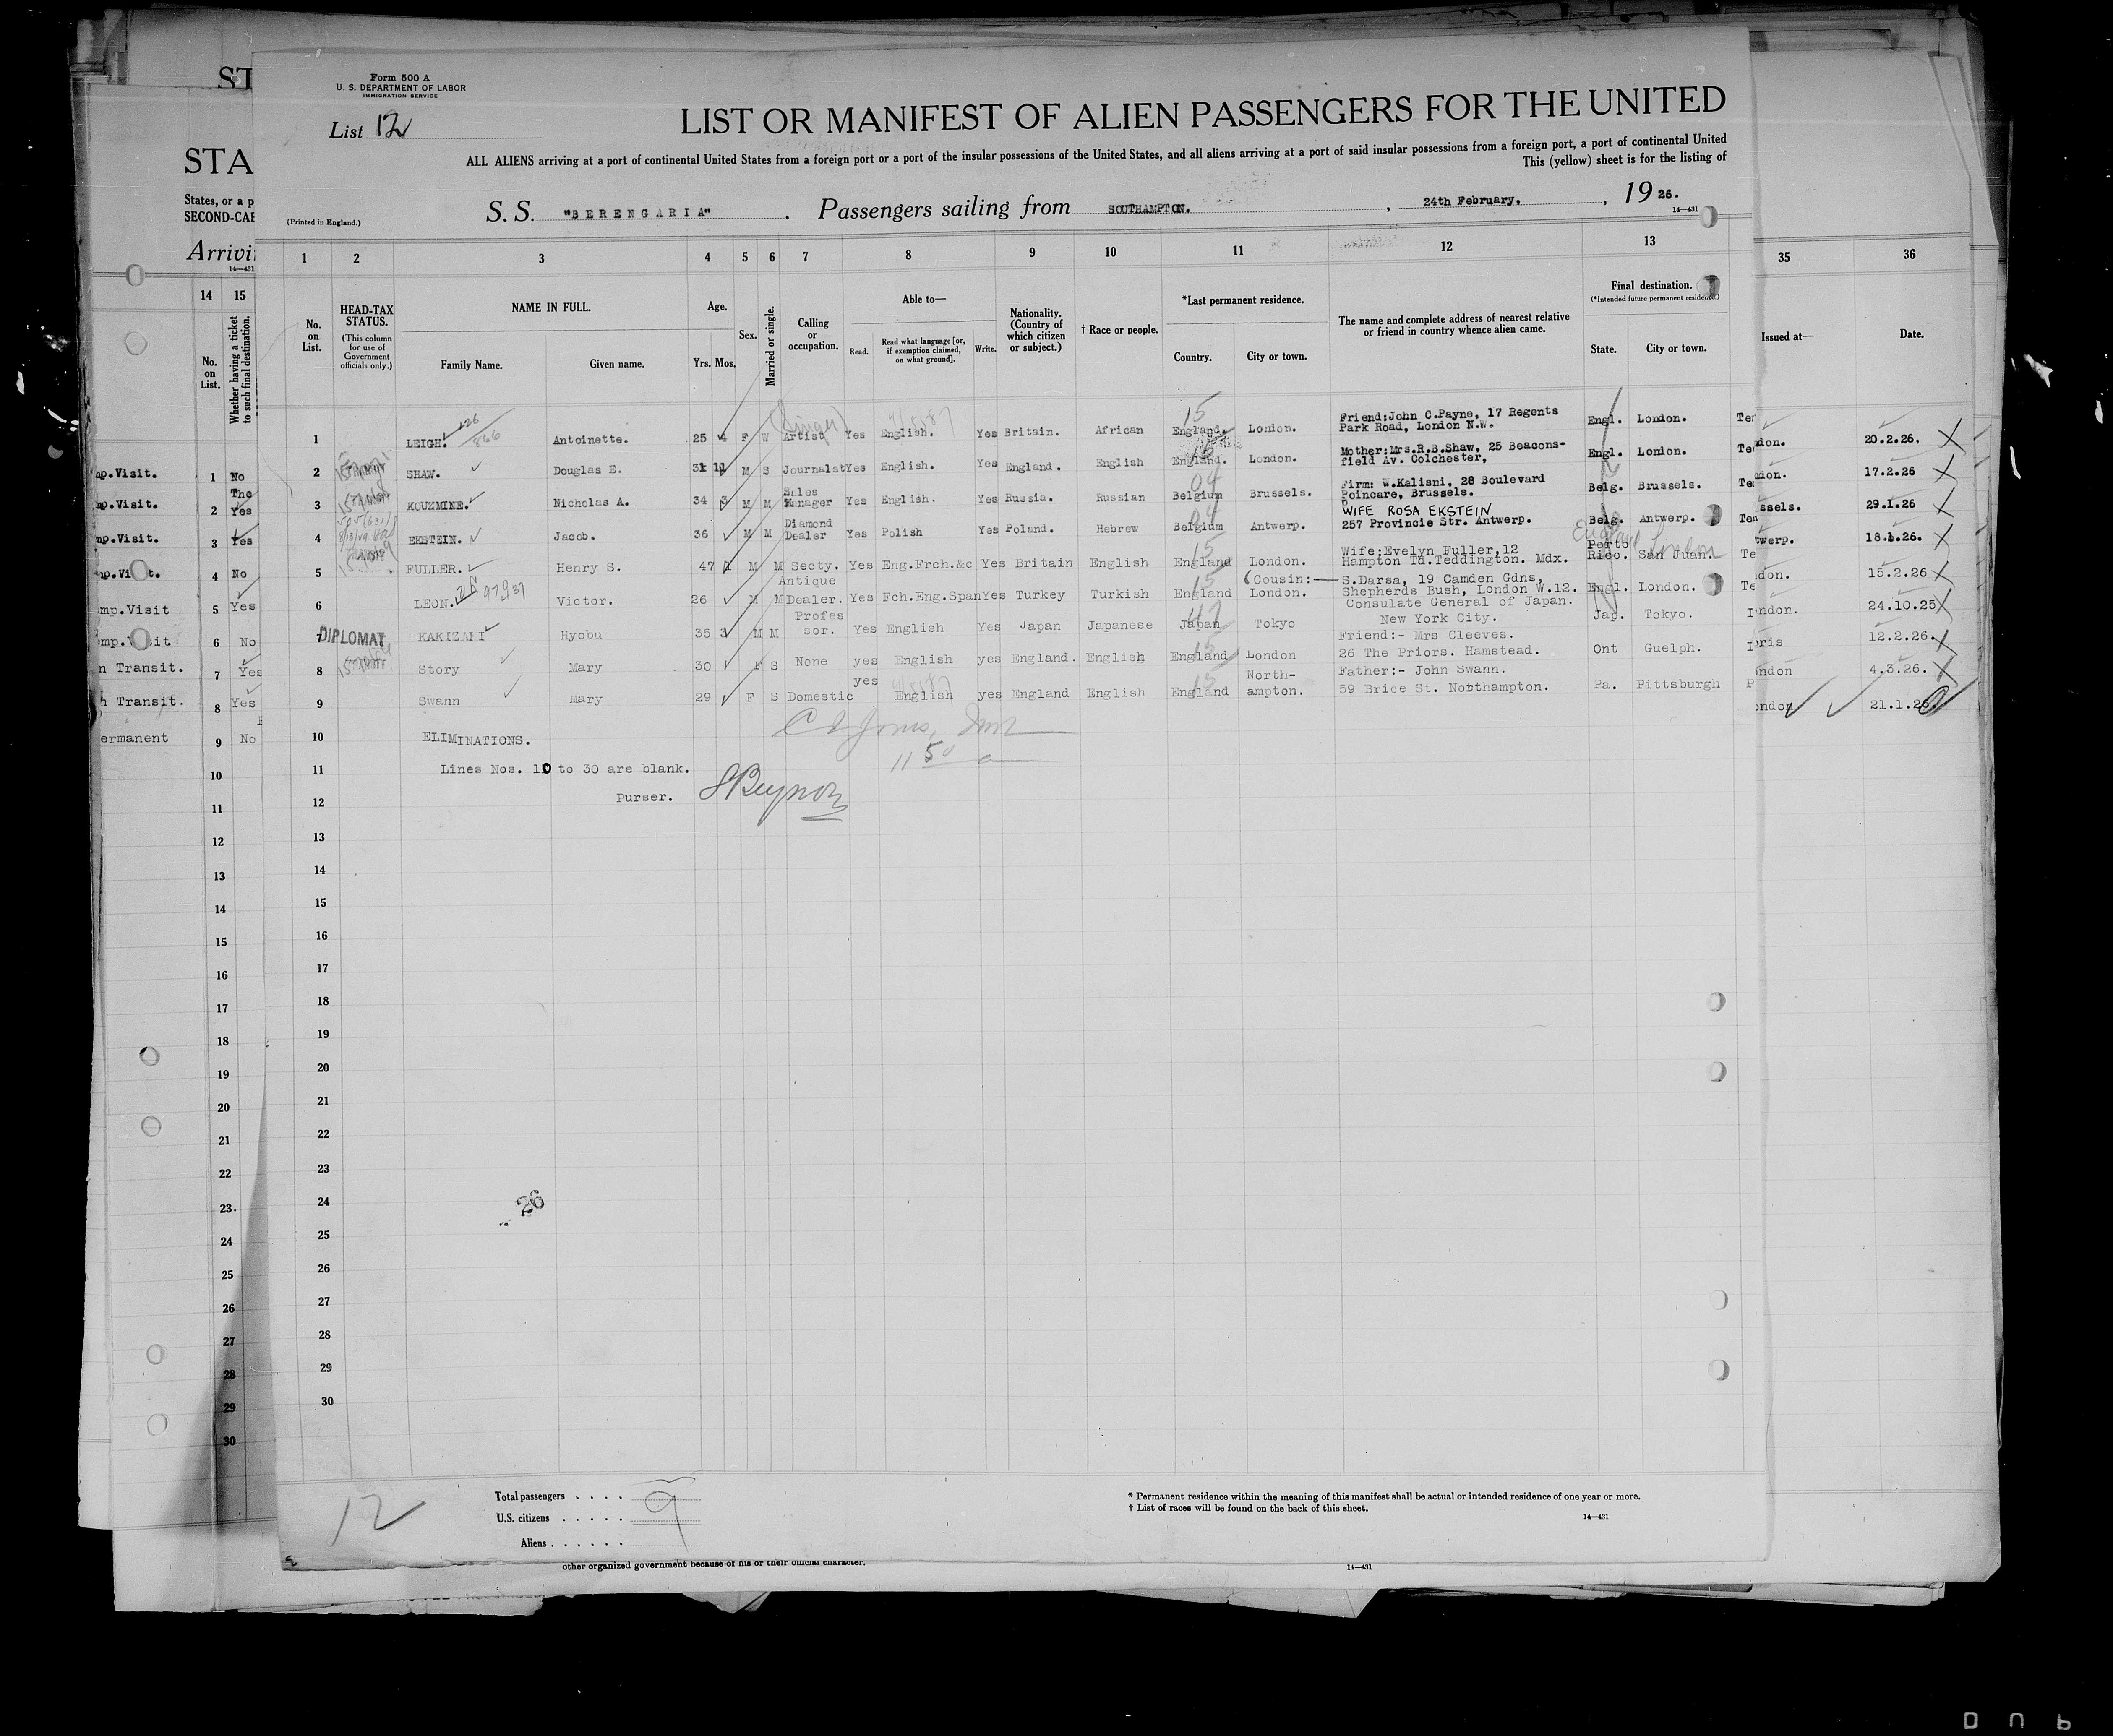 Form 500 A
U. S. DEPARTMENT OF LABOR
IMMIGRATION SERVICE
List 12
LIST OR MANIFEST OF ALIEN PASSENGERS FOR THE UNITED
ALL ALIENS arriving at a port of continental United States from a foreign port or a port of the insular possessions of the United States, and all aliens arriving at a port of said insular possessions from a foreign port, a port of continental United
This (yellow) sheet is for the listing of
S. S. "BERENGARIA" . Passengers sailing from SOUTHAMPTON. , 24th February, , 19 26.
(Printed in England.)
14—431
ST
STA
States, or a p
SECOND-CAB
Arrivi
14—431
1 2 3 4 5 6 7 8 9 10 11 12 13
14 15
35 36
No. on List.
HEAD-TAX STATUS.
(This column for use of Government officials only.)
NAME IN FULL.
Family Name. Given name.
Age.
Yrs. Mos.
Sex.
Married or single.
Calling or occupation.
Able to—
Read. Read what language [or, if exemption claimed, on what ground]. Write.
Nationality. (Country of which citizen or subject.)
† Race or people.
*Last permanent residence.
Country. City or town.
The name and complete address of nearest relative or friend in country whence alien came.
Final destination.
(*Intended future permanent residence.)
State. City or town.
No. on List.
Whether having a ticket to such final destination.
Issued at— Date.
1 LEIGH. Antoinette. 25 4 F W Artist (Singer) Yes English. Yes Britain. African England. London. Friend:John C.Payne, 17 Regents Park Road, London N.W. Engl. London.
2 SHAW. Douglas E. 31 11 M S Journalst Yes English. Yes England. English England. London. Mother:Mrs.R.B.Shaw, 25 Beacons-field Av. Colchester, Engl. London.
3 KOUZMINE. Nicholas A. 34 3 M M Sales Manager Yes English. Yes Russia. Russian Belgium Brussels. Firm: W.Kalisni, 28 Boulevard Poincare, Brussels. Belg. Brussels.
4 EKSTEIN. Jacob. 36 M M Diamond Dealer Yes Polish Yes Poland. Hebrew Belgium Antwerp. WIFE ROSA EKSTEIN 257 Provincie Str. Antwerp. Belg. Antwerp.
5 FULLER. Henry S. 47 M M Secty. Yes Eng.Frch.&c Yes Britain English England London. Wife:Evelyn Fuller,12 Hampton Td.Teddington. Mdx. Porto Rico. San Juan. England London
6 LEON. Victor. 26 M M Antique Dealer. Yes Fch.Eng.Span Yes Turkey Turkish England London. (Cousin:— S.Darsa, 19 Camden Gdns, Shepherds Bush, London W.12. Engl. London.
7 DIPLOMAT KAKIZAKI Hyobu 35 3 M M Profes sor. Yes English Yes Japan Japanese Japan Tokyo Consulate General of Japan. New York City. Jap. Tokyo.
8 Story Mary 30 F S None yes English yes England. English England London Friend:- Mrs Cleeves. 26 The Priors. Hamstead. Ont Guelph.
9 Swann Mary 29 F S Domestic yes English yes England English England North-ampton. Father:- John Swann. 59 Brice St. Northampton. Pa. Pittsburgh
10 ELIMINATIONS.
11 Lines Nos. 10 to 30 are blank.
12 Purser.
13
14
15
16
17
18
19
20
21
22
23
24
25
26
27
28
29
30
26
mp.Visit. 1 No
mp.Visit. 2 Yes
mp.Visit. 3 Yes
mp.Visit. 4 No
mp.Visit 5 Yes
emp.Visit 6 No
n Transit. 7 Yes
h Transit. 8 Yes
ermanent 9 No
10
11
12
13
14
15
16
17
18
19
20
21
22
23.
24
25
26
27
28
29
30
ndon. 20.2.26.
ndon. 17.2.26
ssels. 29.1.26
twerp. 18.1.26.
don. 15.2.26
ondon. 24.10.25
ris 12.2.26.
ondon 4.3.26.
ondon 21.1.26.
12
Total passengers . . . . 9
U.S. citizens . . . . .
Aliens . . . . . .
* Permanent residence within the meaning of this manifest shall be actual or intended residence of one year or more.
† List of races will be found on the back of this sheet.
14—431
other organized government because of his or their official character.
14—431